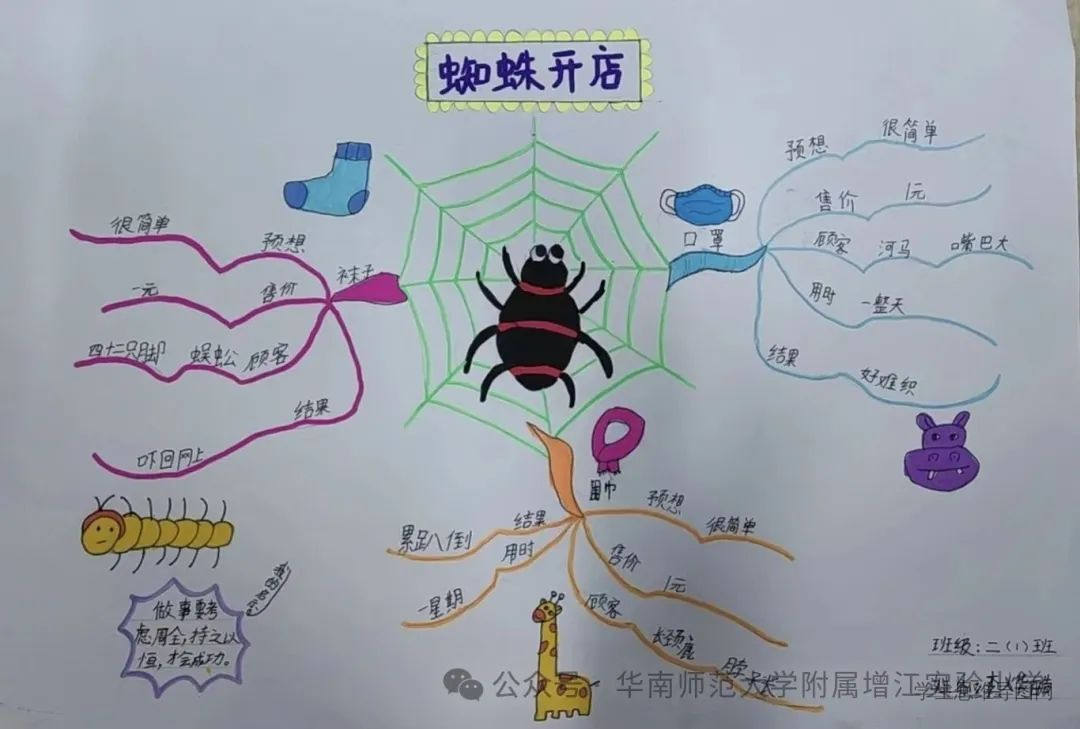 蜘蛛开店
口罩
预想
很简单
售价
1元
顾客
河马
嘴巴大
用时
一整天
结果
好难织
袜子
预想
很简单
售价
一元
顾客
蜈蚣
四十二只脚
结果
吓回网上
围巾
预想
很简单
售价
1元
顾客
长颈鹿
用时
一星期
结果
累趴倒
做事要考
虑周全,持之以
恒,才会成功。
班级:二(1)班
公众号
华南师范大学附属增江实验